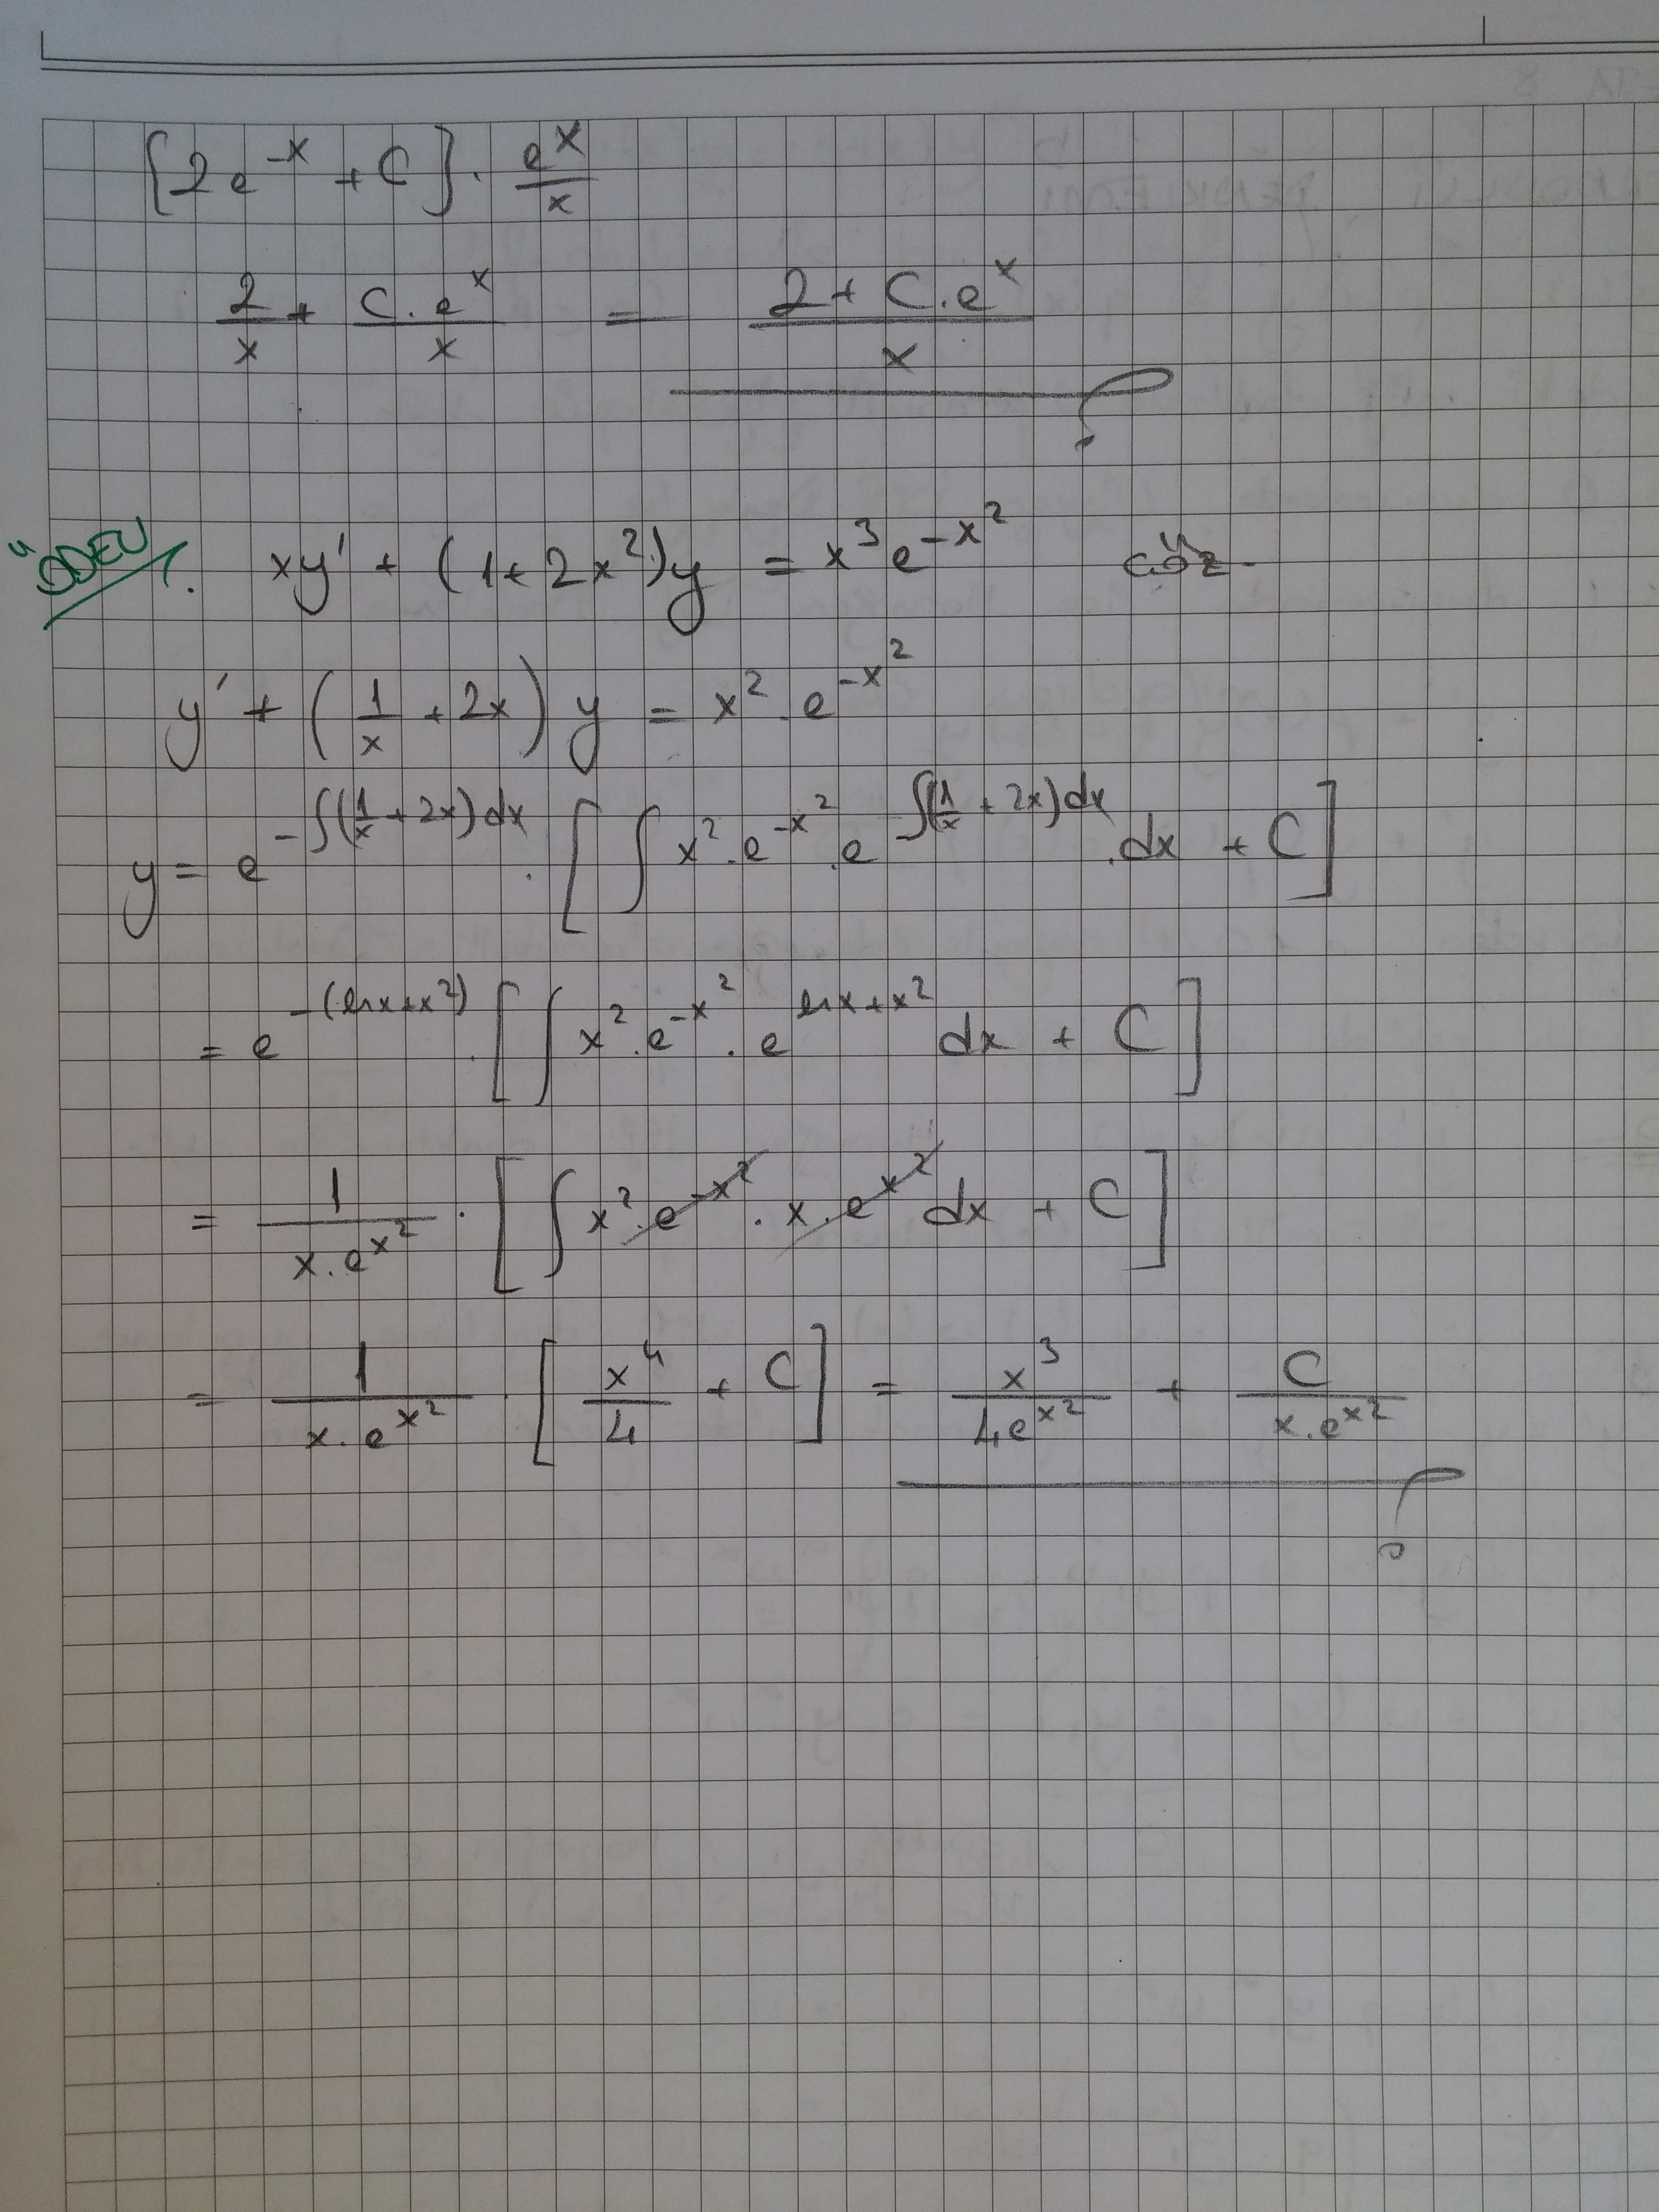 [2e^{-x} + C] · \frac{e^x}{x}
\frac{2}{x} + \frac{C.e^x}{x} = \frac{2 + C.e^x}{x}
ÖDEV/. xy' + (1+2x^2)y = x^3 e^{-x^2} çöz.
y' + (\frac{1}{x} + 2x) y = x^2 . e^{-x^2}
y = e^{-∫(\frac{1}{x} + 2x)dx} . [∫ x^2 . e^{-x^2} . e^{∫(\frac{1}{x} + 2x)dx} . dx + C]
= e^{-(lnx+x^2)} . [∫ x^2 . e^{-x^2} . e^{lnx+x^2} dx + C]
= \frac{1}{x.e^{x^2}} · [∫ x^2 . e^{-x^2} . x . e^{x^2} dx + C]
= \frac{1}{x.e^{x^2}} · [\frac{x^4}{4} + C] = \frac{x^3}{4e^{x^2}} + \frac{C}{x.e^{x^2}}